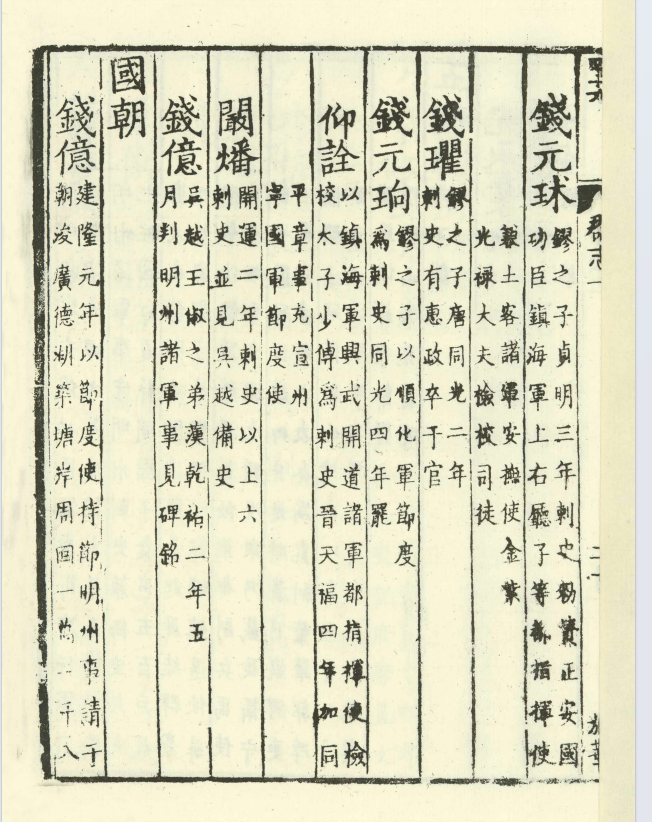 郡志一
錢元球
鏐之子貞明三年刺史勑賛正安國
功臣鎮海軍上右廳子等都指揮使
土客諸軍安撫使金紫
光禄大夫檢校司徒
錢
鏐之子唐同光二年
刺史有惠政卒于官
錢元珦
鏐之子以順化軍節度
為刺史同光四年罷
仰詮
以鎮海軍興武開道諸軍都指揮使檢
校太子少傅爲刺史晉天福四年加同
平章事充宣州
寧國軍節度使
闞燔
開運二年刺史以上六
刺史並見吳越備史
錢億
吳越王俶之弟漢乾祐二年五
月判明州諸軍事見碑銘
國朝
錢億
建隆元年以節度使持節明州事請于
朝浚廣德湖築塘岸周回一萬二千八